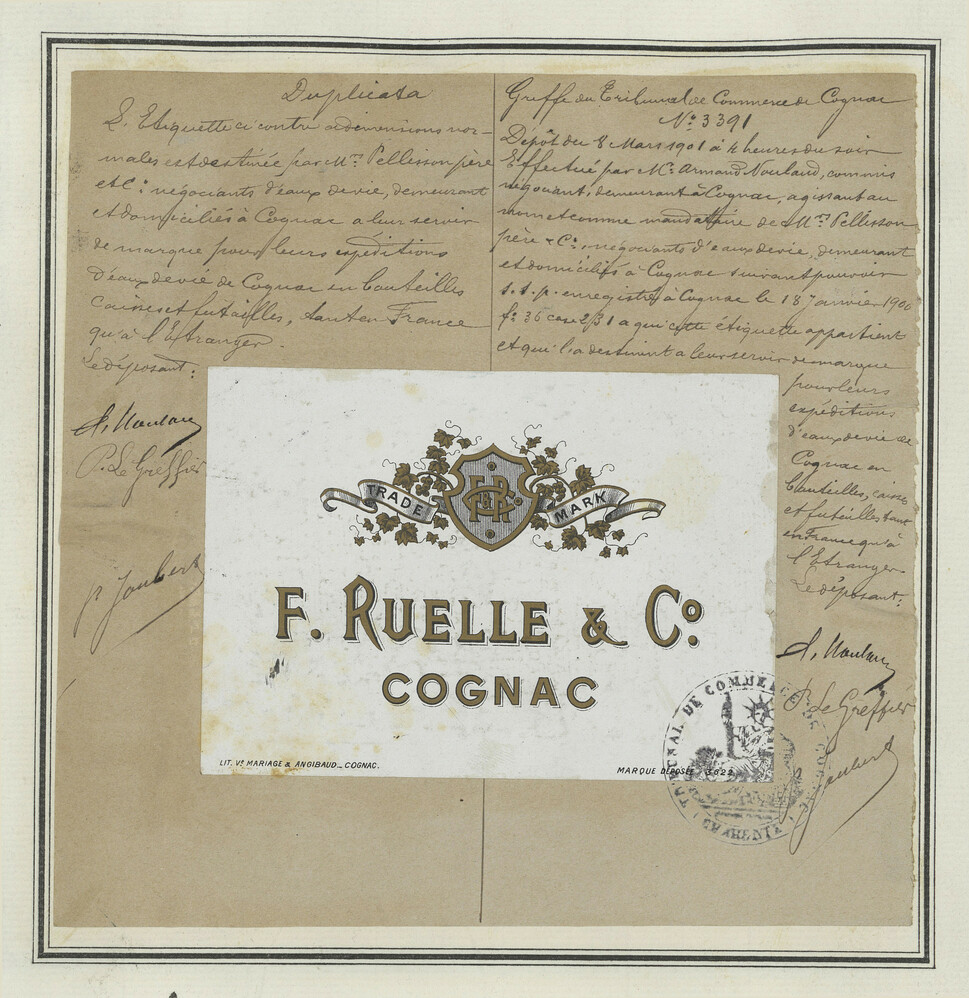 Duplicata
L'Etiquette ci contre a dimensions nor-
males est destinée par Mrs Pellisson père
et Cie négociants d'eaux de vie, demeurant
et domiciliés à Cognac a leur servir
de marque pour leurs expéditions
d'eaux de vie de Cognac en bouteilles
caisses et futailles, tant en France
qu'à l'Etranger.
Le déposant:
P. Le Greffier
p Joubert
Greffe du Tribunal de Commerce de Cognac
No 3391
Dépôt du 8 Mars 1901 à 4 heures du soir
Effectué par Mr Armand Noulaud, commis
négociant, demeurant à Cognac, agissant au
nom et comme mandataire de Mrs Pellisson
père & Cie, négociants d'eaux de vie, demeurant
et domiciliés à Cognac suivant pouvoir
s.s.p. enregistré à Cognac le 18 Janvier 1900
fo 36 case 2/31 a qui cette étiquette appartient
et qui l'a destinent a leur servir de marque
pour leurs
expéditions
d'eaux de vie de
Cognac en
bouteilles, caisses
et futailles tant
en France qu'à
l'Etranger
Le déposant:
P. Le Greffier
Joubert
TRADE MARK
F. RUELLE & Co.
COGNAC
LIT. Ve MARIAGE & ANGIBAUD_COGNAC.
MARQUE DÉPOSÉE
TRIBUNAL DE COMMERCE DE COGNAC
(CHARENTE)